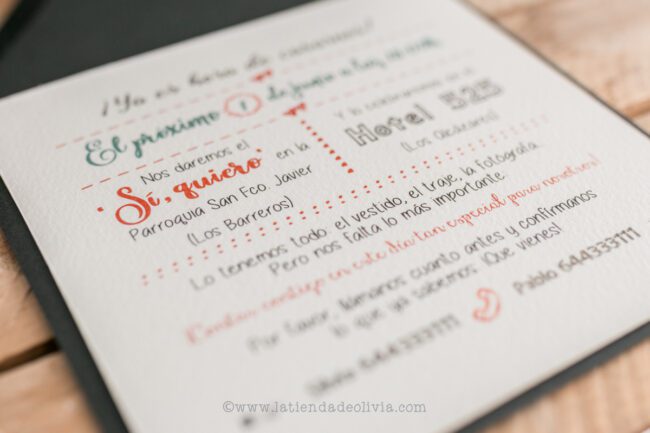 ¡Ya es hora de casarnos!
El próximo 1 de junio a las
Nos daremos el
"Sí, quiero" en la
Parroquia San Fco. Javier
(Los Barreros)
Y lo celebraremos en el
Hotel 525
(Los Alcázares)
Lo tenemos todo: el vestido, el traje, la fotógrafa...
Pero nos falta lo más importante
¡Contar contigo en este día tan especial para nosotros!
Por favor, llámanos cuanto antes y confírmanos
lo que ya sabemos: ¡Que vienes!
Silvia 644333111 Pablo 644333111
©www.latiendadeolivia.com